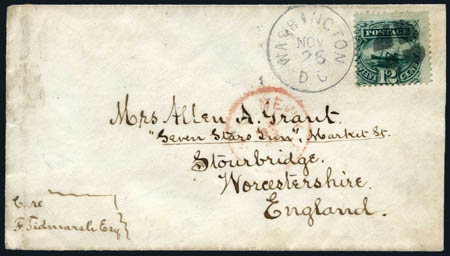 WASHINGTON
NOV
26
D C
POSTAGE
12
Mrs Allen A. Grant.
"Seven Stars Inn", Market St.
NEW
Stourbridge.
Worcestershire.
England.
Care
F. Tidmarsh Esq